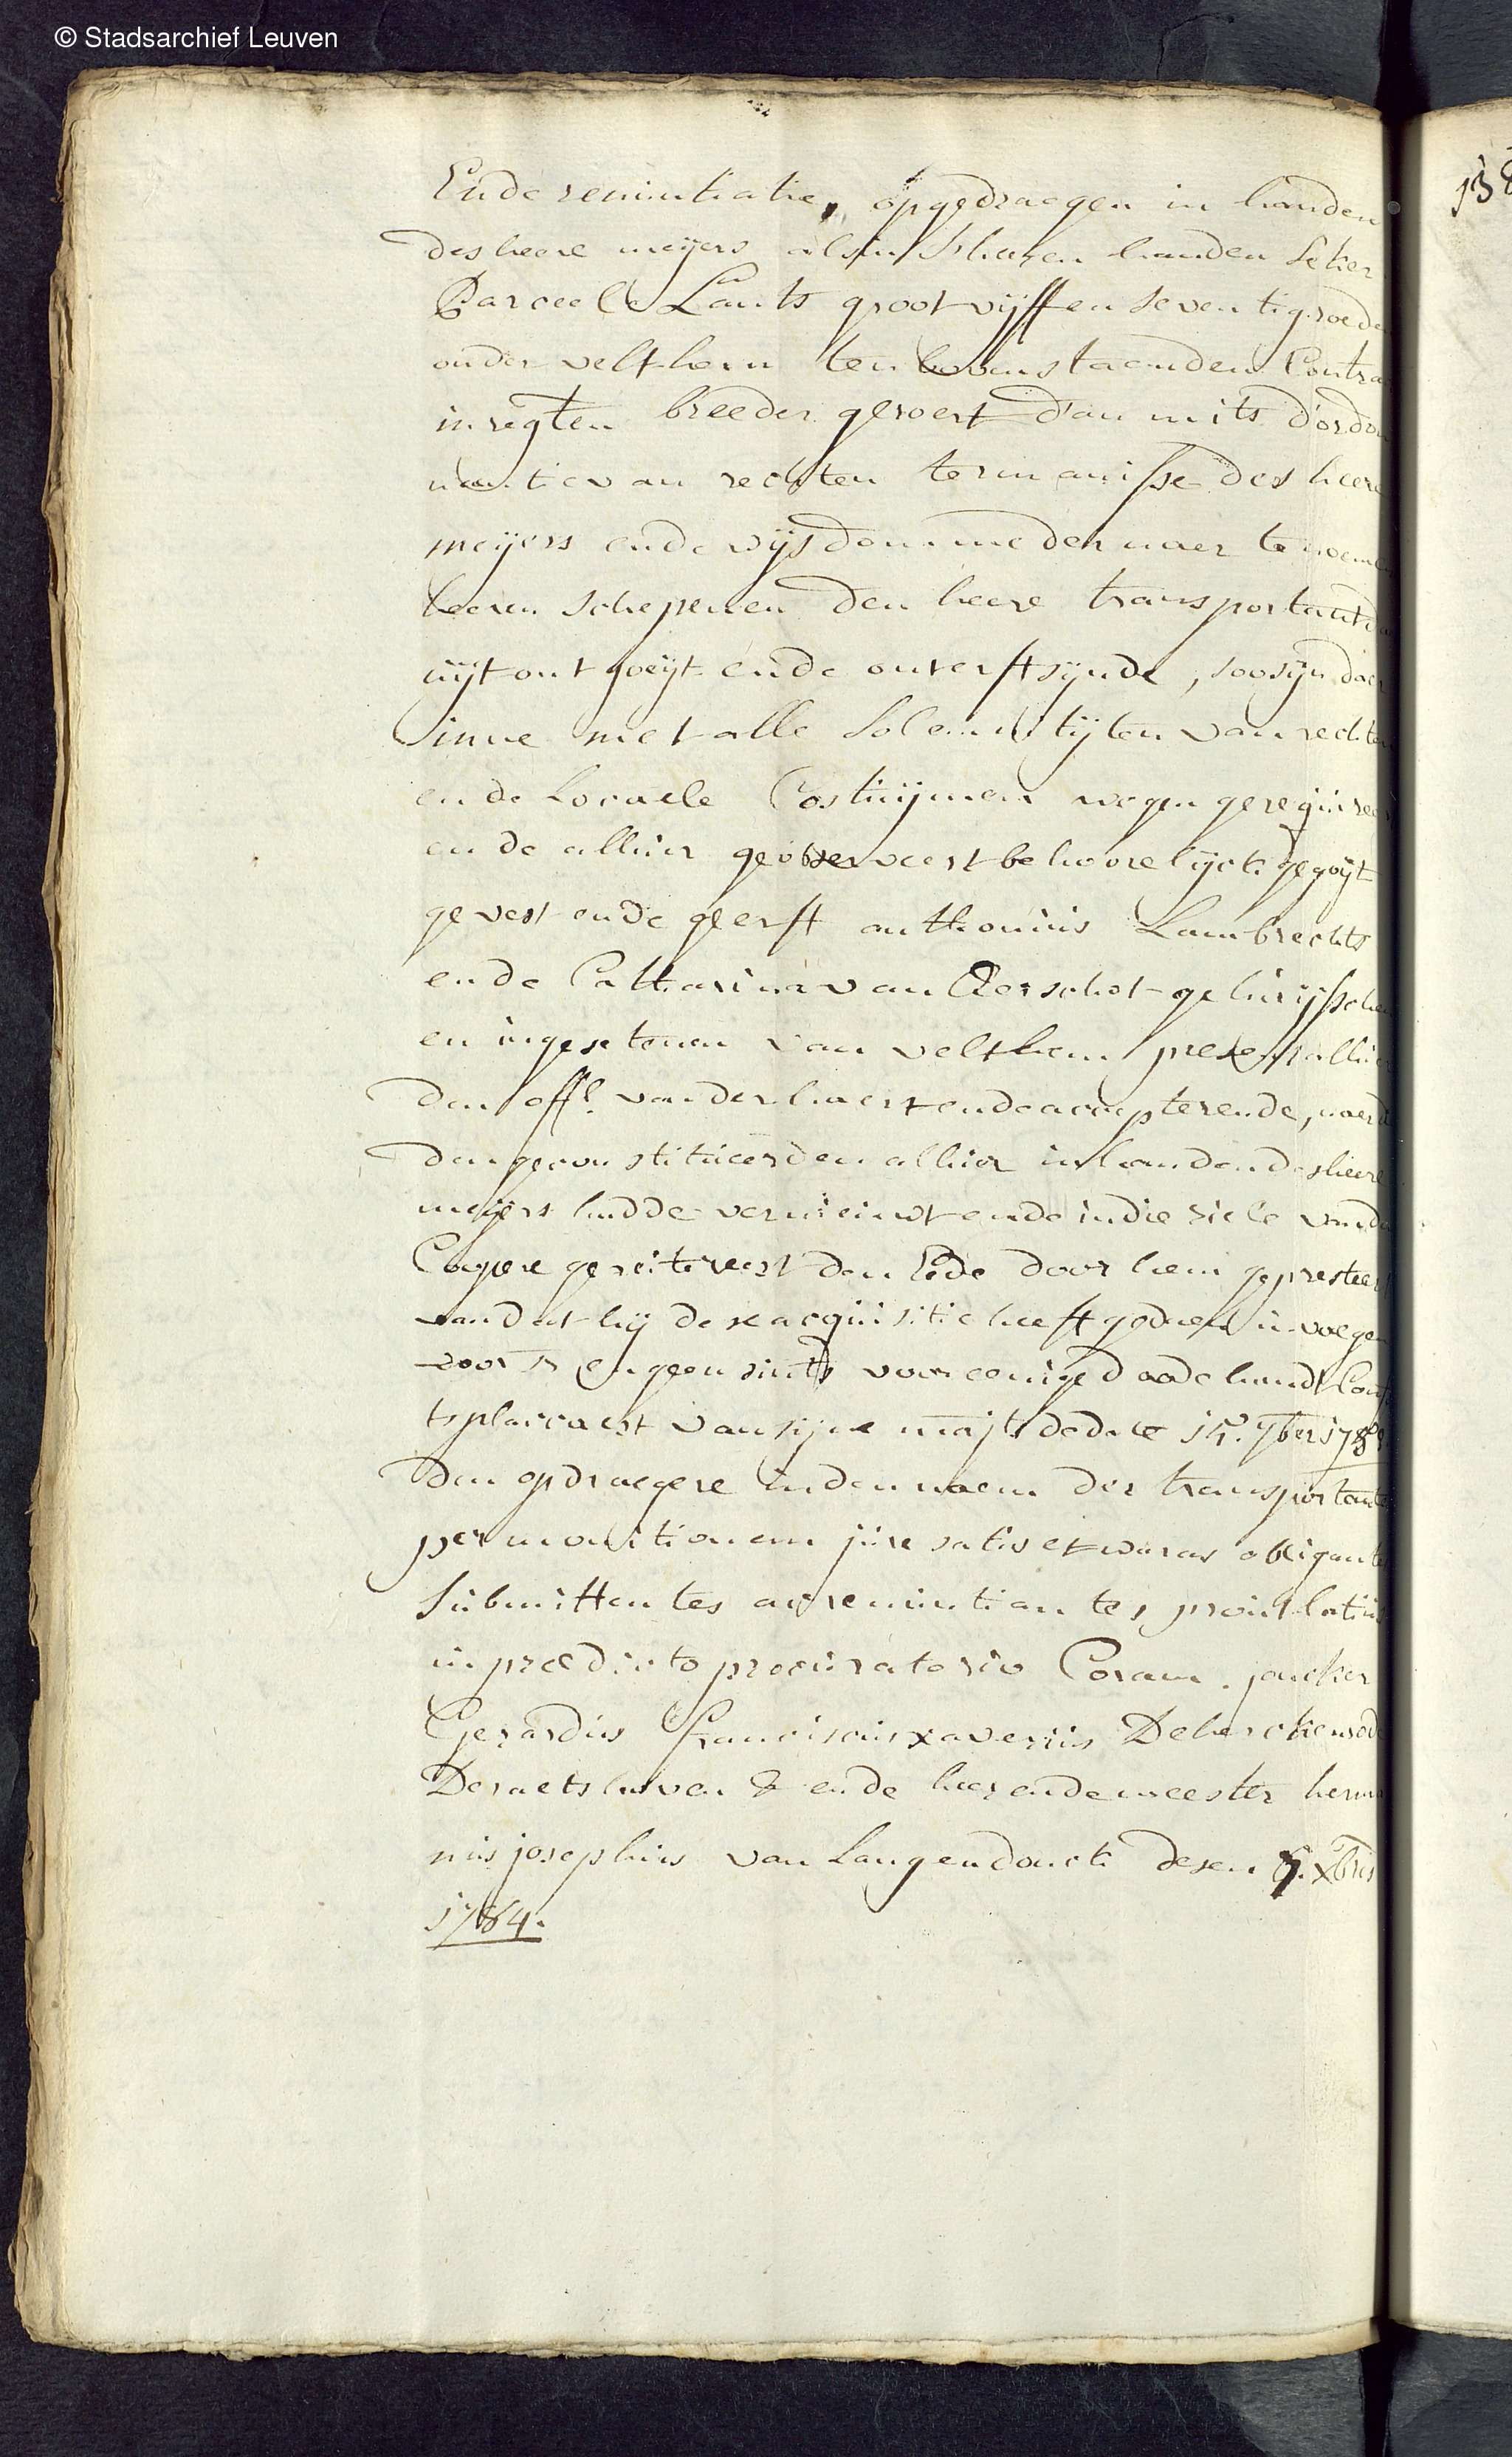 © Stadsarchief Leuven
138
Ende renuntiatie, opgedraegen in handen
des heere meijers als in s'heeren handen seker
Parceele Lants groot vijff en seventig roeden
onder velthem ten bovenstaenden Contra
in regten breeder geroert dan mits d'ordon
nantie van rechten termanisse des heere
meijers ende vijsdomme der naer te noemen
heeren schepenen den heere transportant d
uijt ont goeijt ende onterft sijnde, soo sijn daer
inne met alle solemnitijten van rechten
ende Locaele Costuijmen wegen gerequireer
ende alhier geobserveert behoorelijck gegoijt
gevest ende geerft anthonius Lambrechts
ende Catharina van Aerschot gehuijsschen
en ingesetenen van velthem present alhier
den offl. vander haert ende accepterende, naer d
den geconstitueerden alhier in handen des heere
meijers hadde vernieuwt ende in die siele vande
Copere gereitereert den Eede door hem gepresteert
van dat hij dese acquisitie heeft gedaen in voegen
voors. en geensints voor eenige doode handt Conf
t'placcaert van sijne maj.ts de date 15. 7ber 17
den opdraegere in den naem der transportante
per monitionem jure satis et waras obligante
submittentes ac renuntiantes prout latiu
in praedicto procuratorio Coram joncker
Gerardus franciscus xaverius De herckenrod
De raetshoven & ende heer ende meester herma
nus josephus van Langendonck desen 7. Xbris
1784.